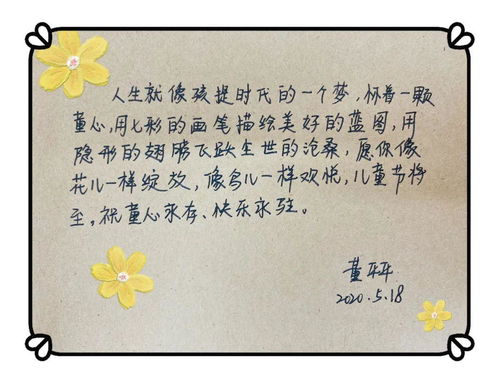 人生就像孩提时代的一个梦,怀着一颗
童心,用七彩的画笔描绘美好的蓝图,用
隐形的翅膀飞跃尘世的沧桑,愿你像
花儿一样绽放,像鸟儿一样欢悦,儿童节将
至,祝童心永存、快乐永驻。
2020.5.18